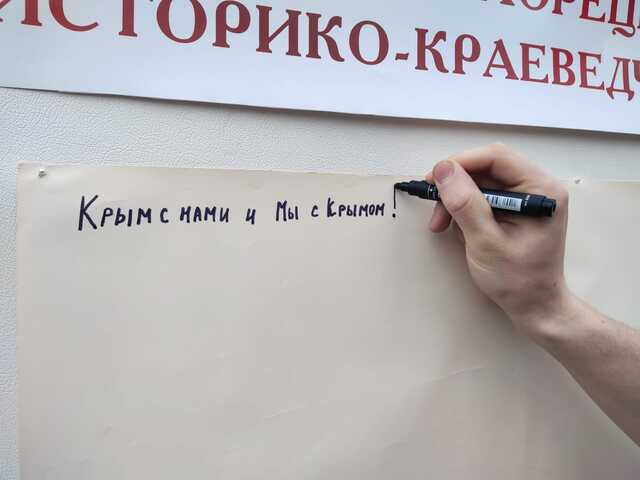 ИСТОРИКО-КРАЕВЕДЧ
Крым с нами и Мы с Крымом!